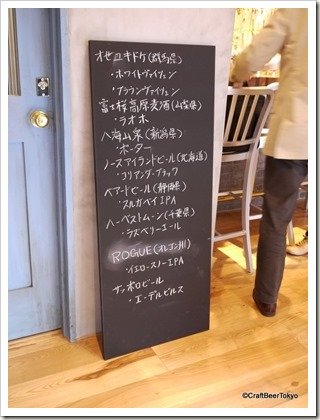 オゼノユキドケ(群馬県)
・ホワイトヴァイツェン
・ブラウンヴァイツェン
富士桜高原麦酒(山梨県)
・ラオホ
八海山泉(新潟県)
・ポーター
ノースアイランドビール(北海道)
・コリアンダーブラック
ベアードビール(静岡県)
・スルガベイIPA
ハーベストムーン(千葉県)
・ラズベリーエール
ROGUE(オレゴン州)
・イエロースノーIPA
サッポロビール
・エーデルピルス
©CraftBeerTokyo